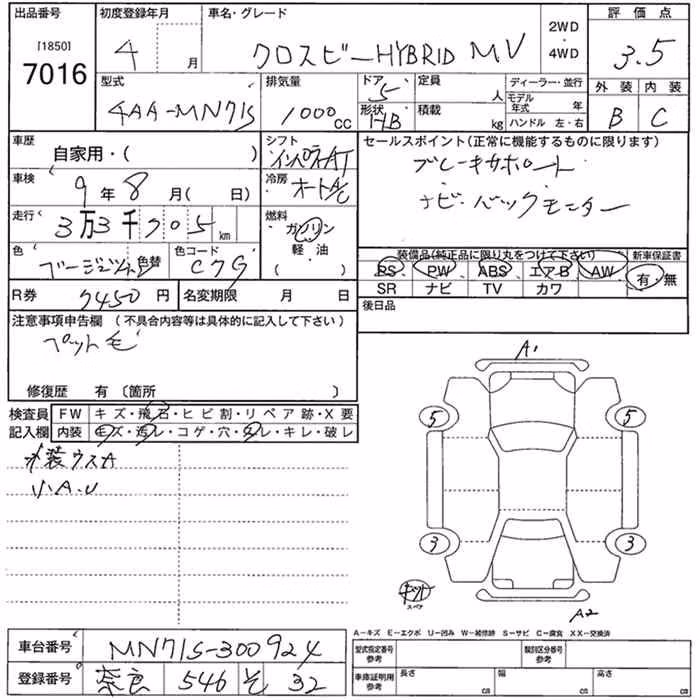 出品番号 [1850] 7016
初度登録年月 4 月
車名・グレード クロスビー HYBRID MV
2WD ・ 4WD
評価点 3.5
外装 B 内装 C
型式 4AA-MN71S
排気量 1000 cc
ドア 5 形状 HB
定員 人
積載 kg
ディーラー・並行
モデル年式 年
ハンドル 左・右
車歴 自家用・( )
シフト インパネAT
セールスポイント(正常に機能するものに限ります)
ブレーキサポート
ナビ・バックモニター
車検 9年8月(日)
冷房 オートA/C
走行 3万3千705km
燃料 ガソリン・軽油 ( )
色 ベージュツートン 色替
色コード C7G
装備品(純正品に限り丸をつけて下さい) 新車保証書
PS PW ABS エアB AW 有・無
SR ナビ TV カワ
R券 7450円 名変期限 月 日
後日品
注意事項申告欄 (不具合内容等は具体的に記入して下さい)
ペット毛
修復歴 有 〔箇所 〕
検査員記入欄
FW キズ・飛石・ヒビ割・リペア跡・X要
内装 キズ・汚レ・コゲ・穴・スレ・キレ・破レ
外装ウスA
小A.U
A1
5 5
3 3
キット スペア
A2
A-キズ E-エクボ U-凹み W-補修跡 S-サビ C-腐食 XX-交換済
車台番号 MN71S-300924
登録番号 奈良 546 そ 32
型式指定番号 参考 類別区分番号 参考
車庫証明用 参考 長さ cm 幅 cm 高さ cm